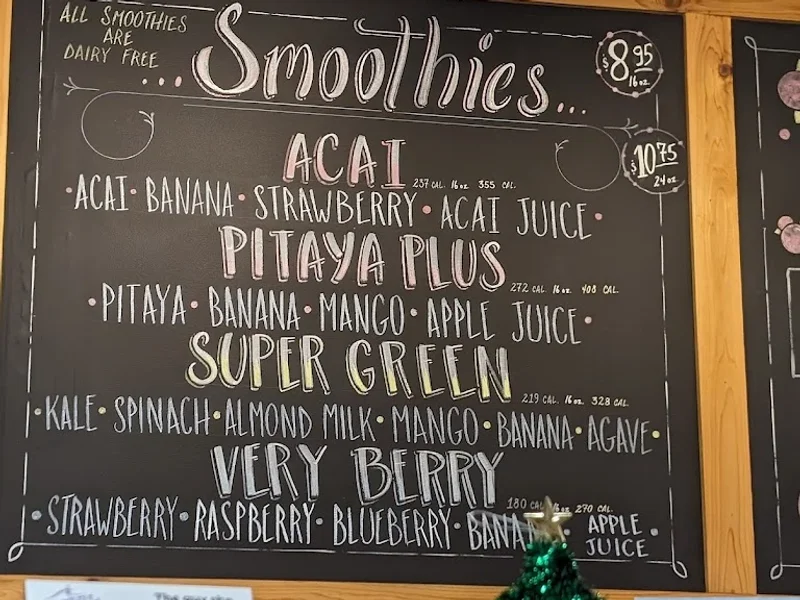 ALL SMOOTHIES
ARE
DAIRY FREE
...Smoothies...
$8.95
16oz
$10.75
24oz
ACAI
237 CAL. 16oz. 355 CAL.
•ACAI•BANANA•STRAWBERRY•ACAI JUICE•
PITAYA PLUS
272 CAL. 16oz. 408 CAL.
•PITAYA•BANANA•MANGO•APPLE JUICE•
SUPER GREEN
219 CAL. 16oz. 328 CAL.
•KALE•SPINACH•ALMOND MILK•MANGO•BANANA•AGAVE•
VERY BERRY
180 CAL 16oz. 270 CAL.
•STRAWBERRY•RASPBERRY•BLUEBERRY•BANA
APPLE
JUICE•